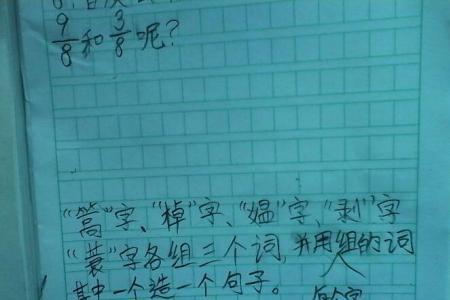 9/8和3/8呢?
“蒿”字、“棹”字、“媪”字、“剥”字
“蓑”字各组三个词,并用组的词
其中一个造一个句子。